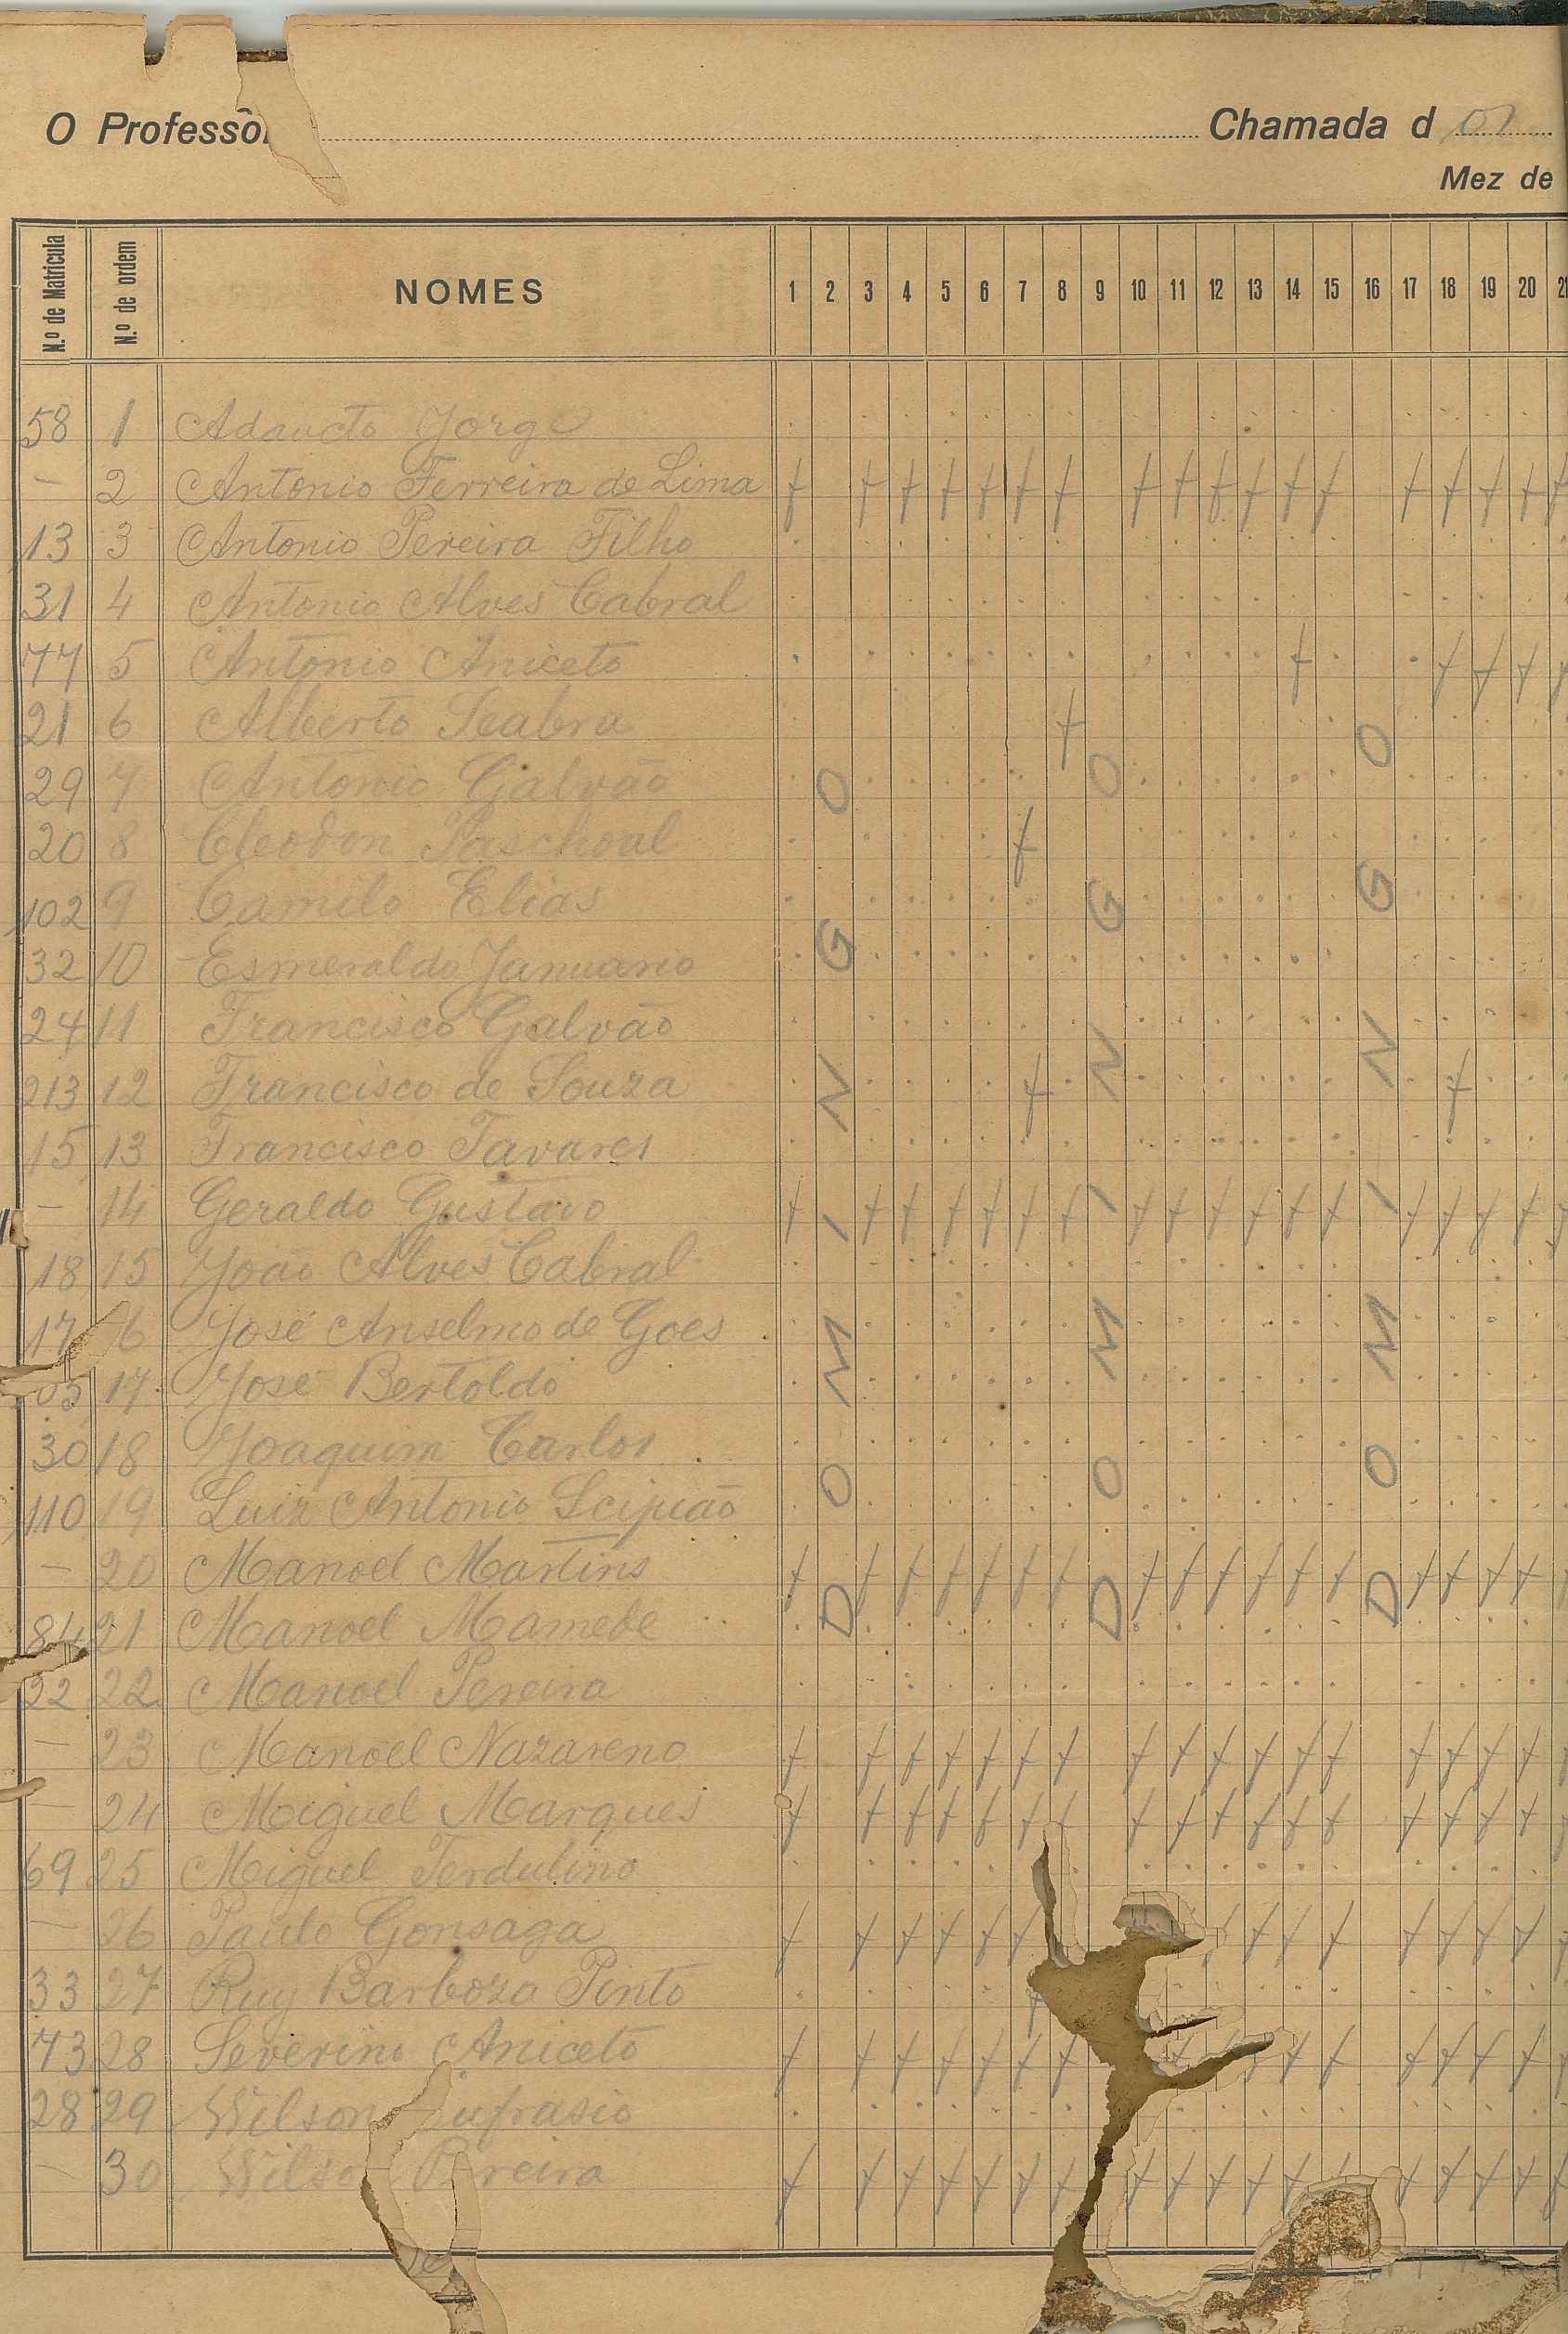 O Professô
Chamada d
Mez de
N.º de Matricula N.º de ordem NOMES 1 2 3 4 5 6 7 8 9 10 11 12 13 14 15 16 17 18 19 20 21
58 1 Adaucto Jorge
— 2 Antonio Ferreira de Lima f f f f f f f f f f f f f f f f f
13 3 Antonio Pereira Filho
31 4 Antonio Alves Cabral
77 5 Antonio Aniceto f f f f
21 6 Alberto Seabra f
29 7 Antonio Galvão
20 8 Cleodon Paschoal f
102 9 Camilo Elias
32 10 Esmeraldo Januario
24 11 Francisco Galvão
213 12 Francisco de Souza f f
15 13 Francisco Tavares
— 14 Geraldo Gustavo f f f f f f f f f f f f f f f f f
18 15 João Alves Cabral
17 6 José Anselmo de Goes
05 17 José Bertoldo
30 18 Joaquim Carlos
110 19 Luiz Antonio Scipião
— 20 Manoel Martins f f f f f f f f f f f f f f f f f
84 21 Manoel Mamede
22 22 Manoel Pereira
— 23 Manoel Nazareno f f f f f f f f f f f f f f f f f
— 24 Miguel Marques f f f f f f f f f f f f f f f f f
69 25 Miguel Terdulino
— 26 Paulo Gonsaga f f f f f f f f f f f f f
33 27 Ruy Barboza Pinto f
73 28 Severino Aniceto f f f f f f f f f f f f f
28 29 Wilson Eufrasio
— 30 Wilson Pereira f f f f f f f f f f f f f f f f f
DOMINGO
DOMINGO
DOMINGO